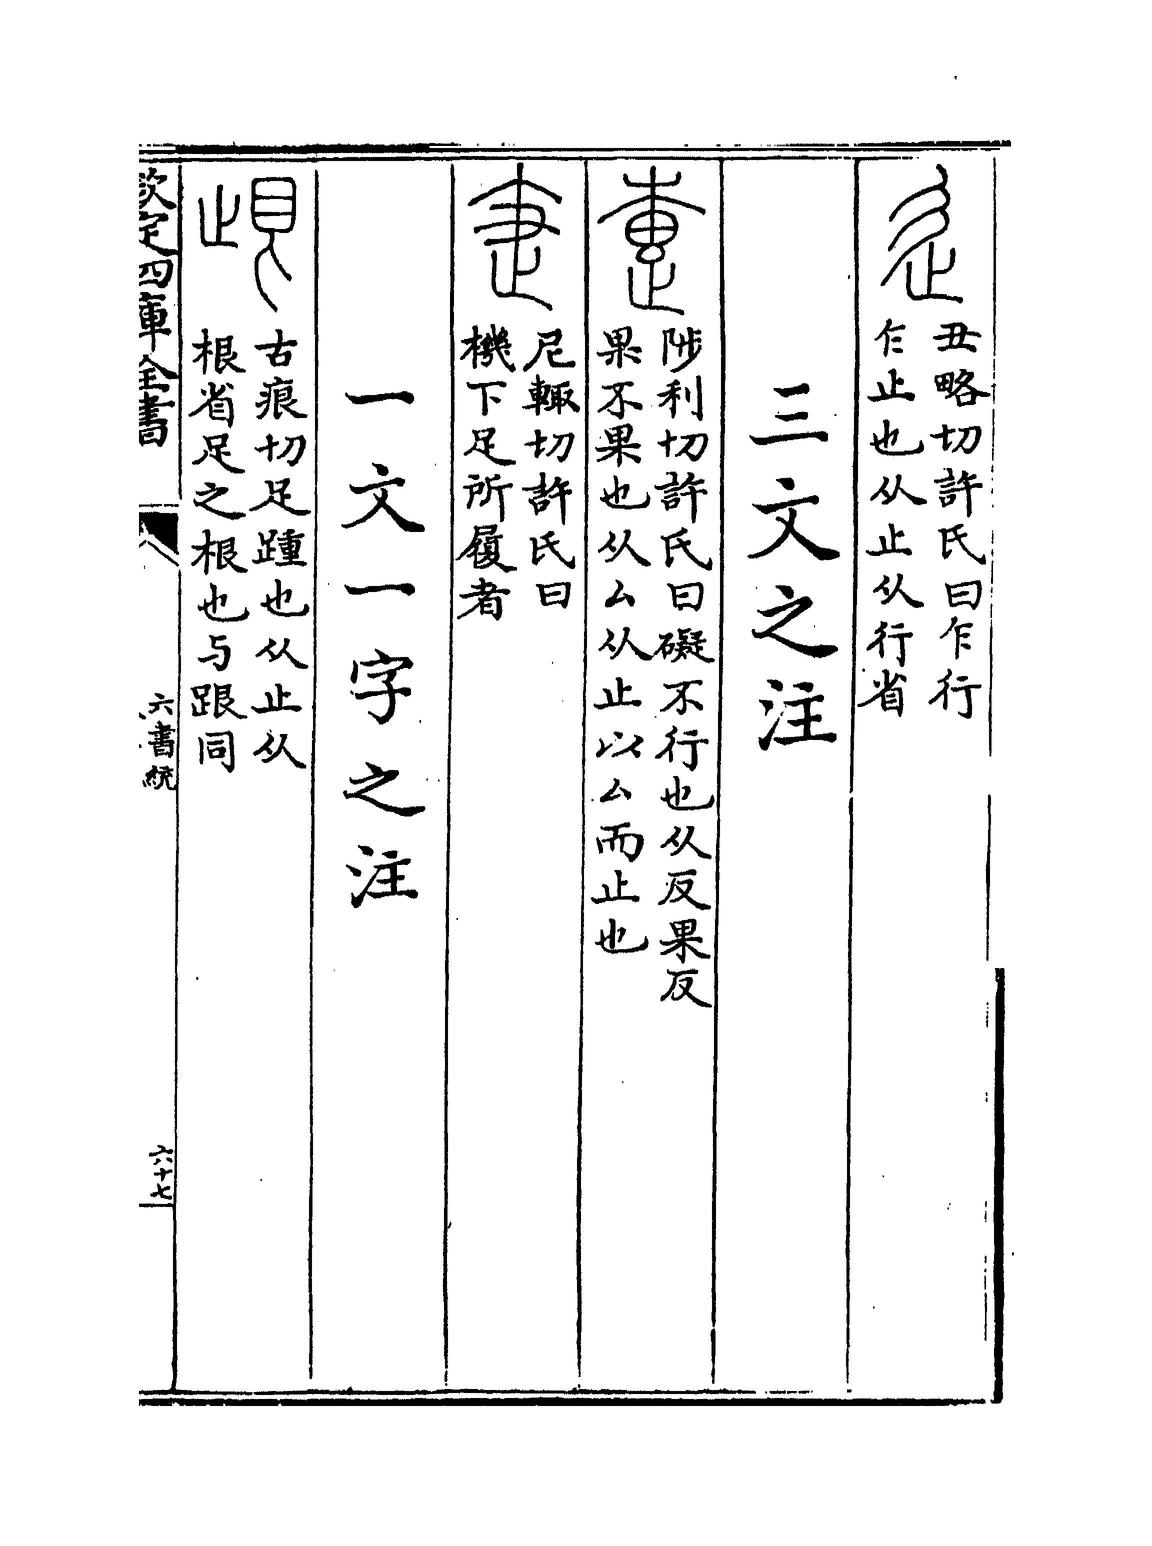 辵
丑略切許氏曰乍行
乍止也从止从行省
三文之注
疐
陟利切許氏曰礙不行也从反果反
果不果也从厶从止以厶而止也
疌
尼輒切許氏曰
機下足所履者
一文一字之注
古痕切足踵也从止从
根省足之根也与跟同
欽定四庫全書
六書統
六十七